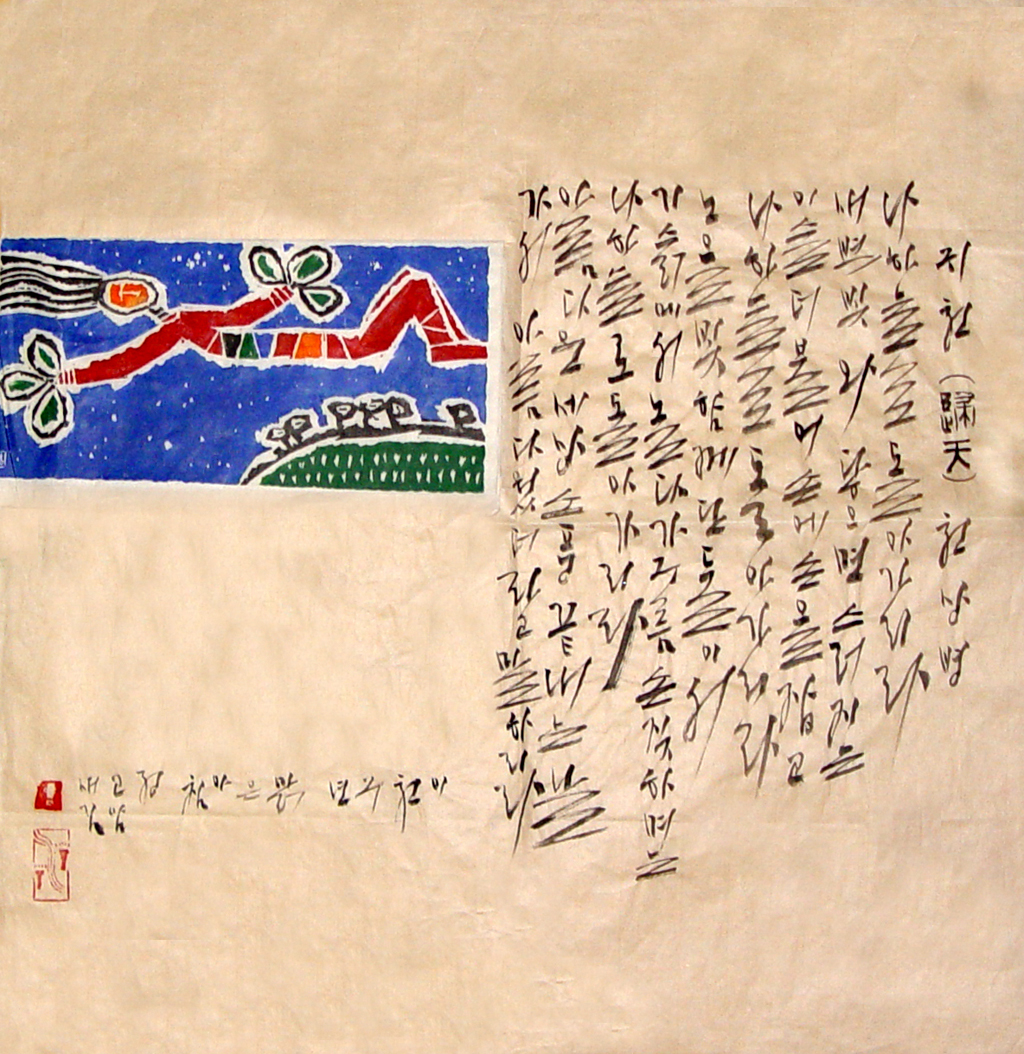 귀천 (歸天) 천상병
나 하늘로 돌아가리라
새벽빛 와 닿으면 스러지는
이슬 더불어 손에 손을 잡고
나 하늘로 돌아가리라
노을빛 함께 단 둘이서
기슭에서 놀다가 구름 손짓하면은
나 하늘로 돌아가리라
아름다운 세상 소풍 끝내는 날
가서 아름다웠더라고 말하리라
이천구년 맑은 아침 정고암 새김